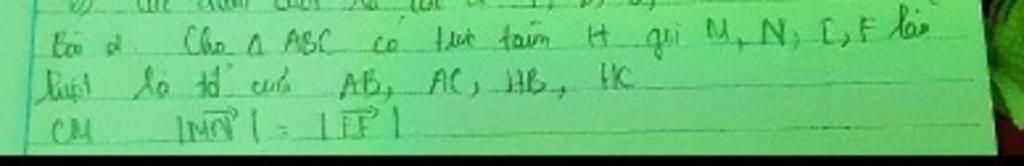 Bài 2. Cho Δ ABC có trực tâm H gọi M, N, E, F lần
lượt là tđ của AB, AC, HB, HC
CM |MN| = |EF|